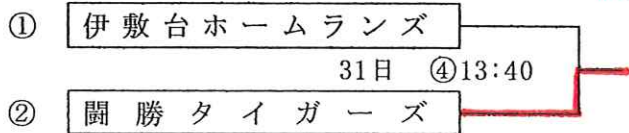 ① 伊敷台ホームランズ
31日 ④13:40
② 闘勝タイガーズ